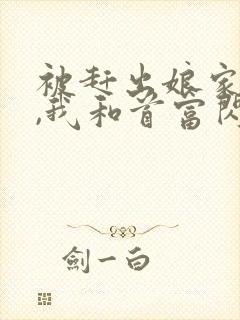 被赶出娘家
,我和首富闪
剑一白